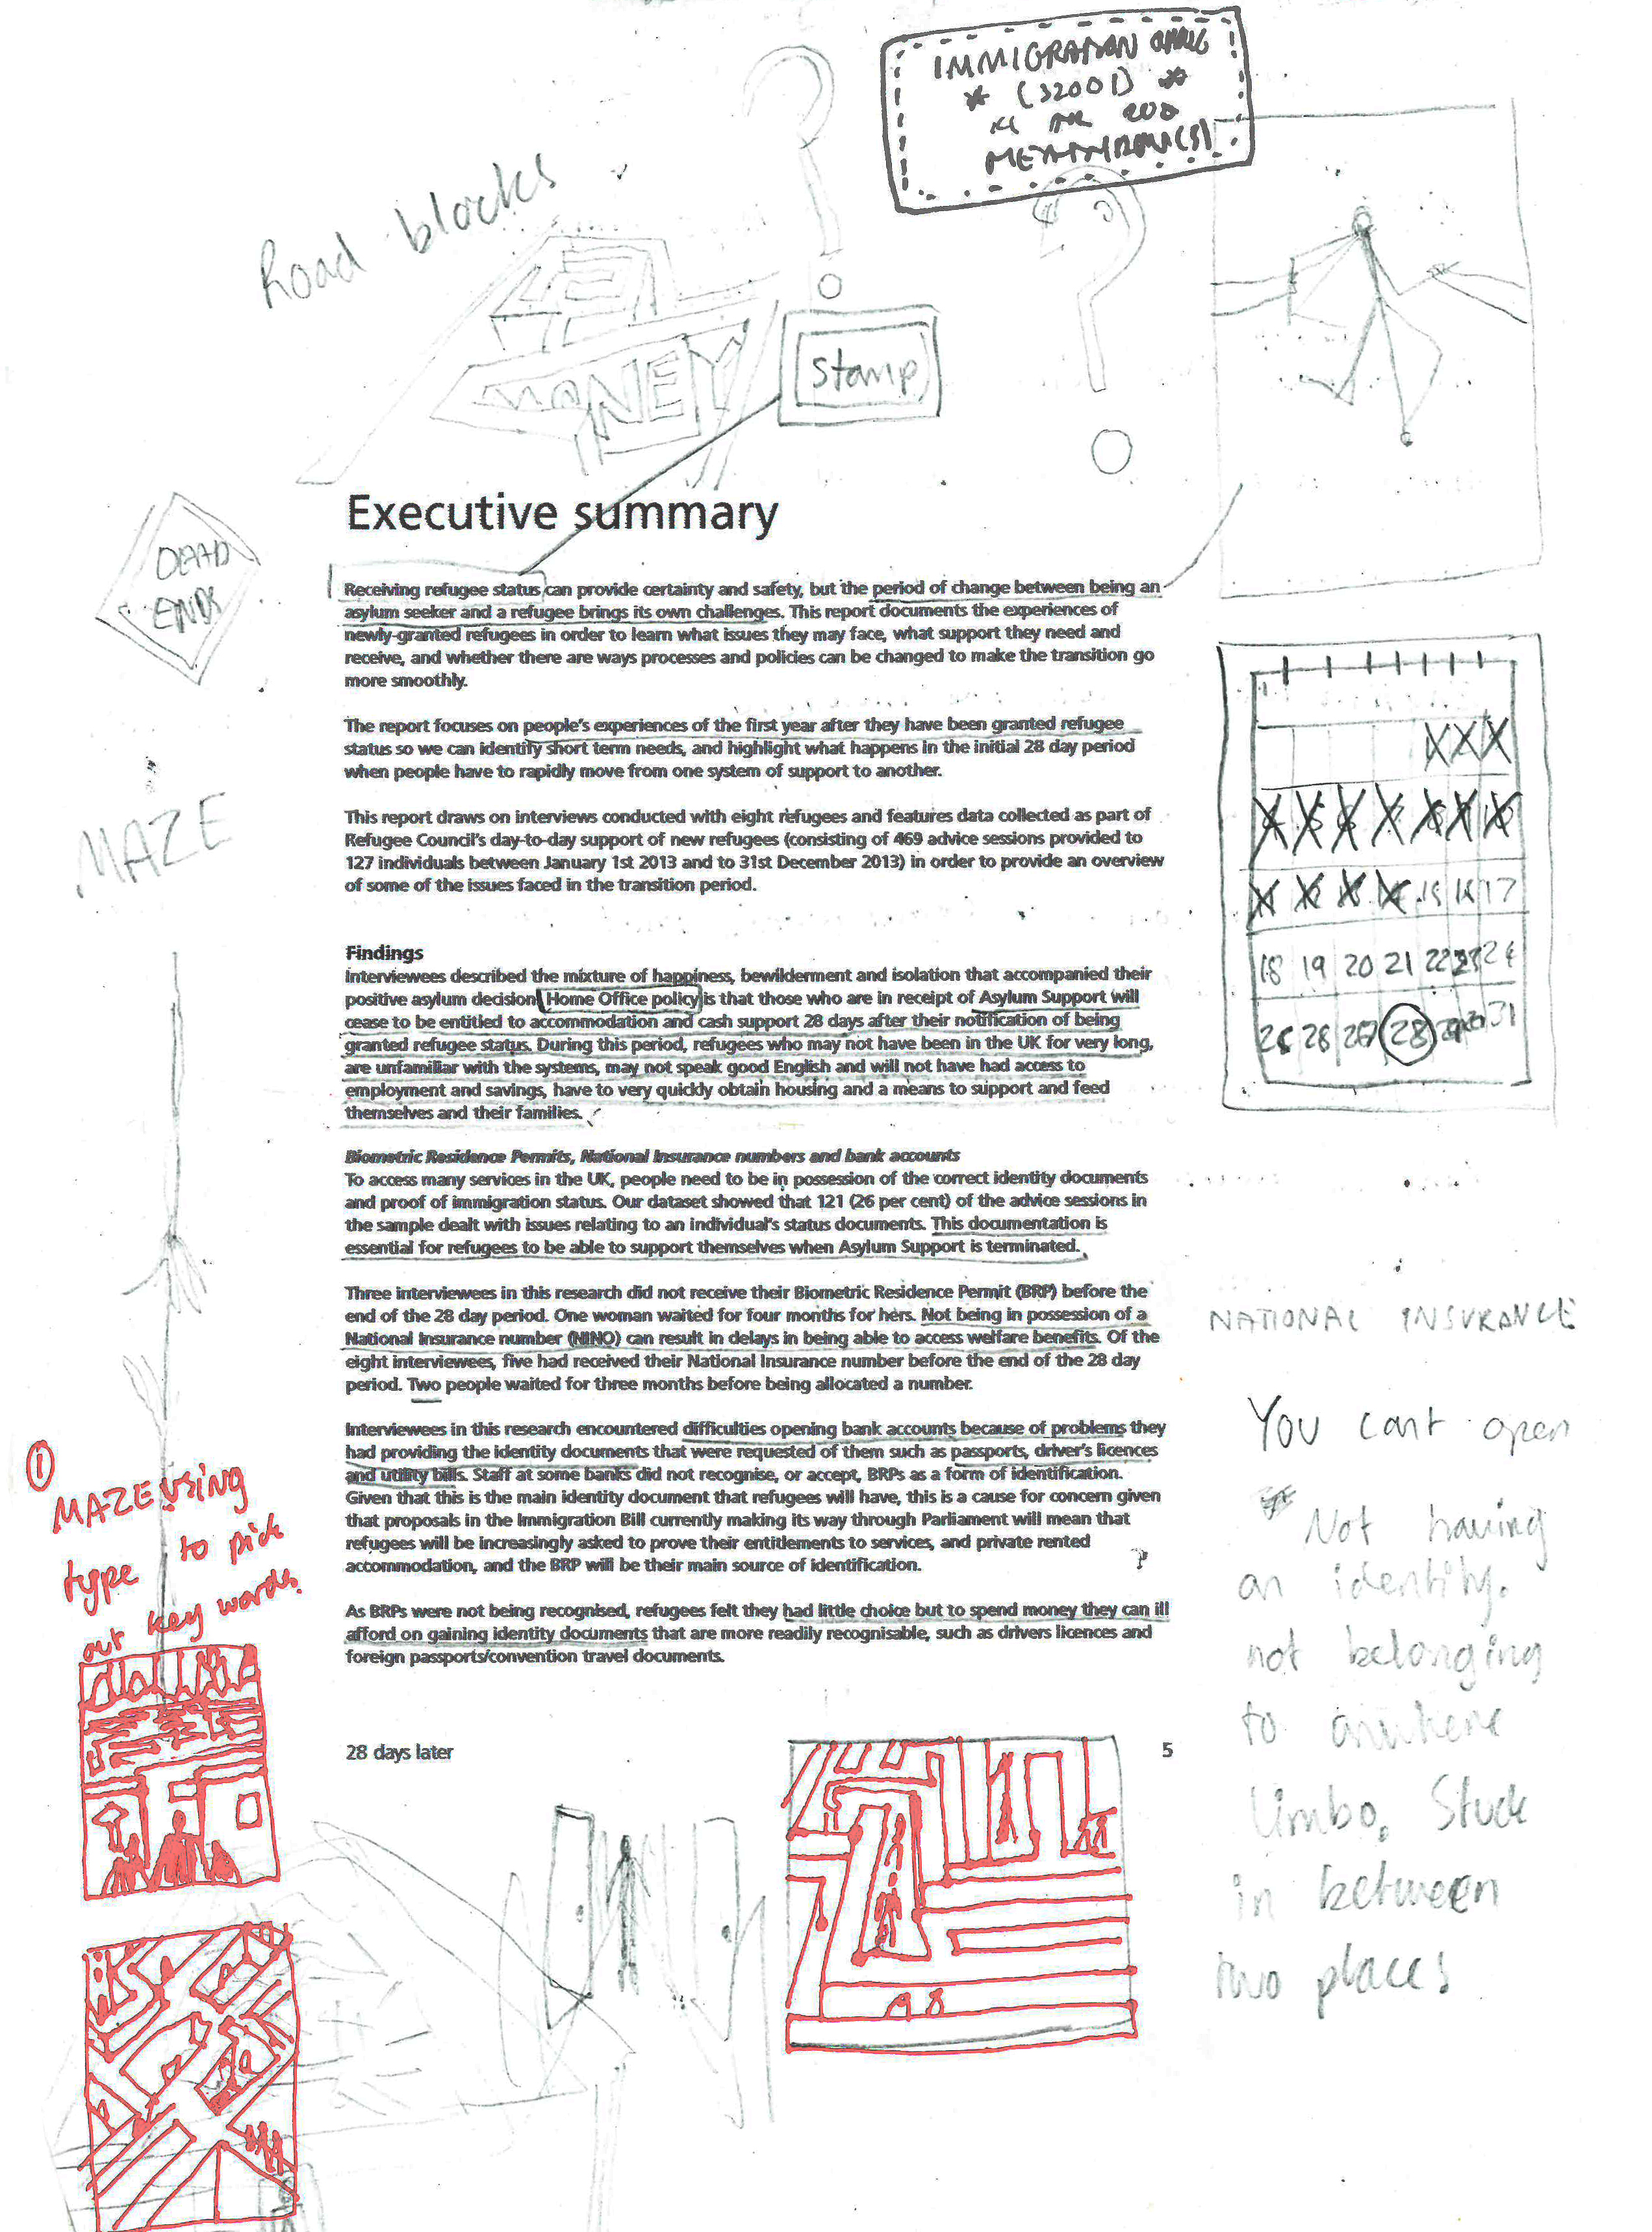 IMMIGRATION
(32001)
Road blocks
MONEY
Stamp
Executive summary
DEAD
ENDS
Receiving refugee status can provide certainty and safety, but the period of change between being an
asylum seeker and a refugee brings its own challenges. This report documents the experiences of
newly-granted refugees in order to learn what issues they may face, what support they need and
receive, and whether there are ways processes and policies can be changed to make the transition go
more smoothly.
The report focuses on people's experiences of the first year after they have been granted refugee
status so we can identify short term needs, and highlight what happens in the initial 28 day period
when people have to rapidly move from one system of support to another.
MAZE
This report draws on interviews conducted with eight refugees and features data collected as part of
Refugee Council's day-to-day support of new refugees (consisting of 469 advice sessions provided to
127 individuals between January 1st 2013 and to 31st December 2013) in order to provide an overview
of some of the issues faced in the transition period.
15 16 17
18 19 20 21 22 23 24
28 31
Findings
Interviewees described the mixture of happiness, bewilderment and isolation that accompanied their
positive asylum decision. Home Office policy is that those who are in receipt of Asylum Support will
cease to be entitled to accommodation and cash support 28 days after their notification of being
granted refugee status. During this period, refugees who may not have been in the UK for very long,
are unfamiliar with the systems, may not speak good English and will not have had access to
employment and savings, have to very quickly obtain housing and a means to support and feed
themselves and their families.
Biometric Residence Permits, National Insurance numbers and bank accounts
To access many services in the UK, people need to be in possession of the correct identity documents
and proof of immigration status. Our dataset showed that 121 (26 per cent) of the advice sessions in
the sample dealt with issues relating to an individual's status documents. This documentation is
essential for refugees to be able to support themselves when Asylum Support is terminated.
Three interviewees in this research did not receive their Biometric Residence Permit (BRP) before the
end of the 28 day period. One woman waited for four months for hers. Not being in possession of a
National Insurance number (NINO) can result in delays in being able to access welfare benefits. Of the
eight interviewees, five had received their National Insurance number before the end of the 28 day
period. Two people waited for three months before being allocated a number.
Interviewees in this research encountered difficulties opening bank accounts because of problems they
had providing the identity documents that were requested of them such as passports, driver's licences
and utility bills. Staff at some banks did not recognise, or accept, BRPs as a form of identification.
Given that this is the main identity document that refugees will have, this is a cause for concern given
that proposals in the Immigration Bill currently making its way through Parliament will mean that
refugees will be increasingly asked to prove their entitlements to services, and private rented
accommodation, and the BRP will be their main source of identification.
As BRPs were not being recognised, refugees felt they had little choice but to spend money they can ill
afford on gaining identity documents that are more readily recognisable, such as drivers licences and
foreign passports/convention travel documents.
28 days later 5
NATIONAL INSURANCE
You cant open
Not having
an identity.
not belonging
to anwhere
limbo. Stuck
in between
two places
1
MAZE using
type to pick
out key words.